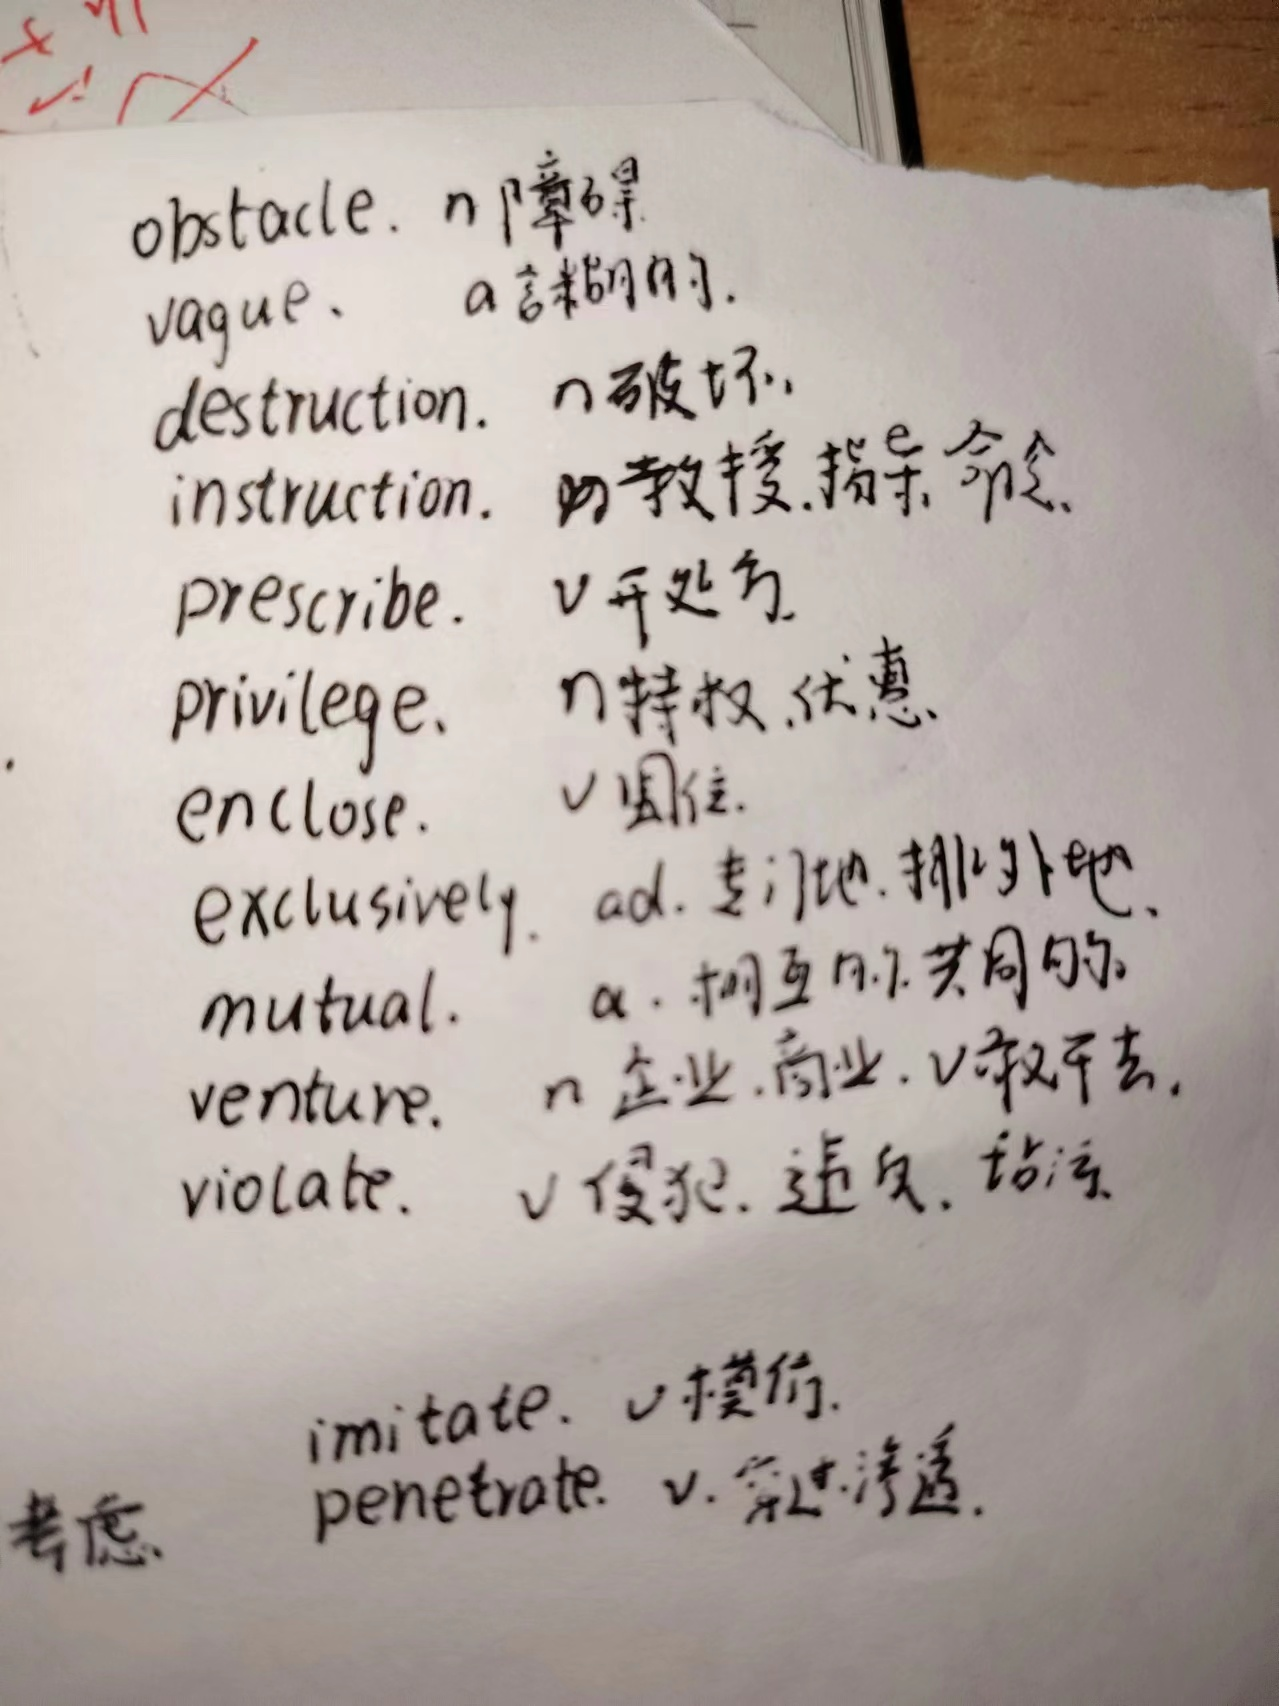 obstacle. n 障碍
vague. a 糊的.
destruction. n 破坏.
instruction. n 教授.指导.命令.
prescribe. v 开处方.
privilege. n 特权.优惠.
enclose. v 围住.
exclusively. ad. 专门地.排外地.
mutual. a. 相互的.共同的.
venture. n 企业.商业. v 敢于去.
violate. v 侵犯. 违反. 玷污.
imitate. v 模仿.
penetrate. v. 穿过.渗透.
考虑.